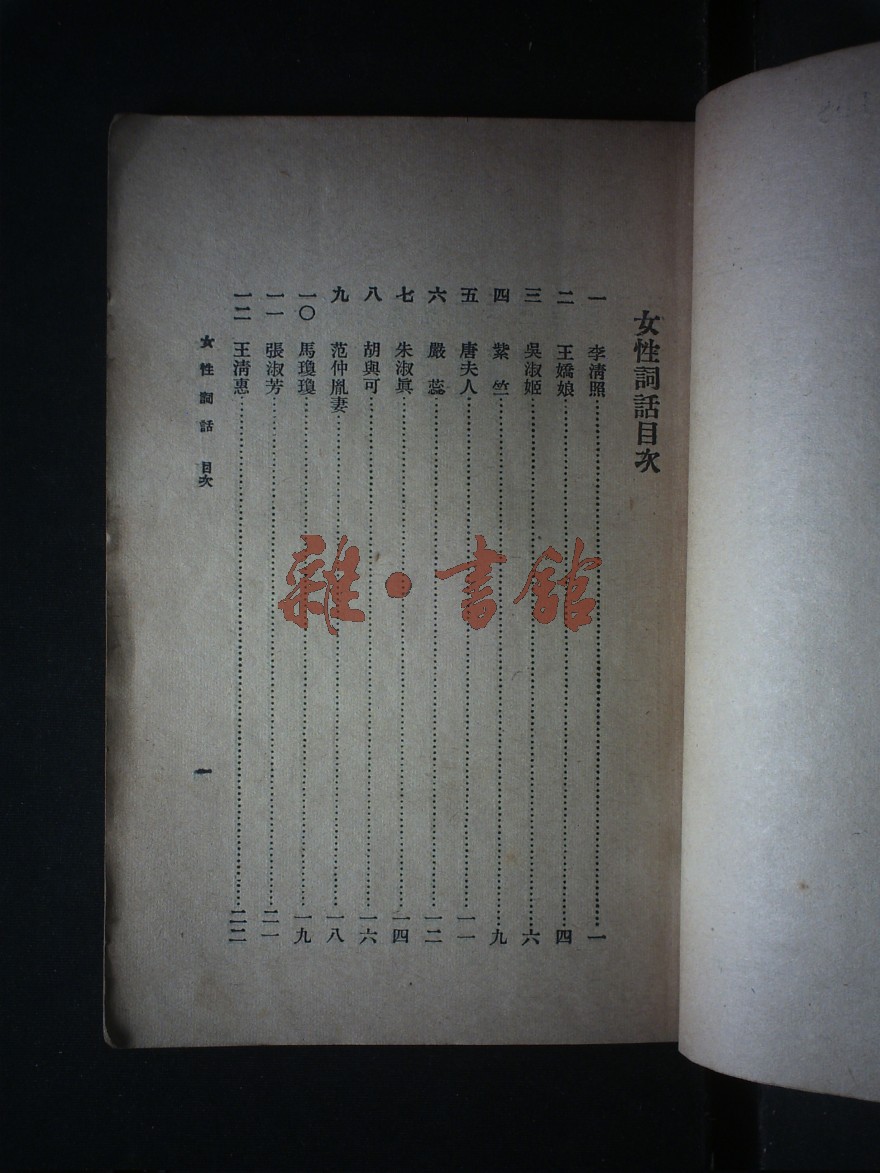 女性詞話目次
一 李清照 一
二 王嬌娘 四
三 吳淑姬 六
四 紫竺 九
五 唐夫人 一一
六 嚴蕊 一二
七 朱淑眞 一四
八 胡與可 一六
九 范仲胤妻 一八
一〇 馬瓊瓊 一九
一一 張淑芳 二一
一二 王淸惠 二二
女性詞話 目次
一
雜·書館